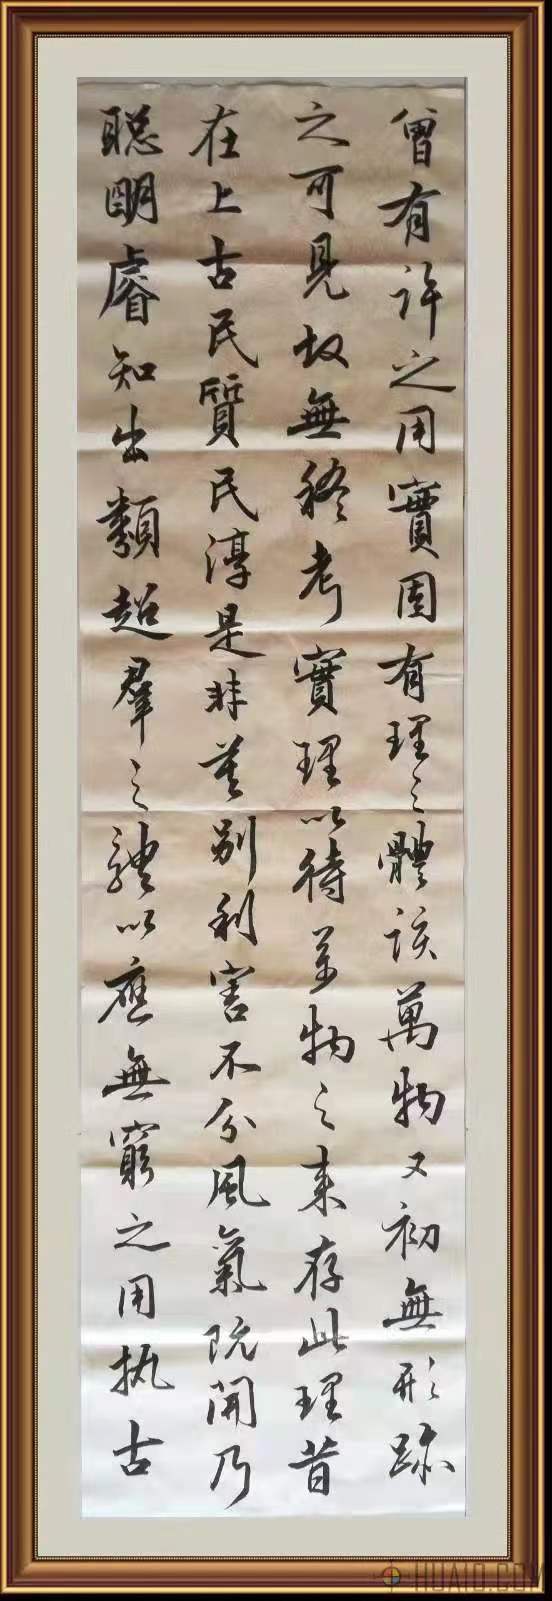 曾有許之用實固有理之體該萬物又初無形跡
之可見故無終考實理以待萬物之来存此理昔
在上古民質民淳是非莫别利害不分風氣既開乃
聰明睿知出類超羣之體以應無窮之用執古
HUA10.COM